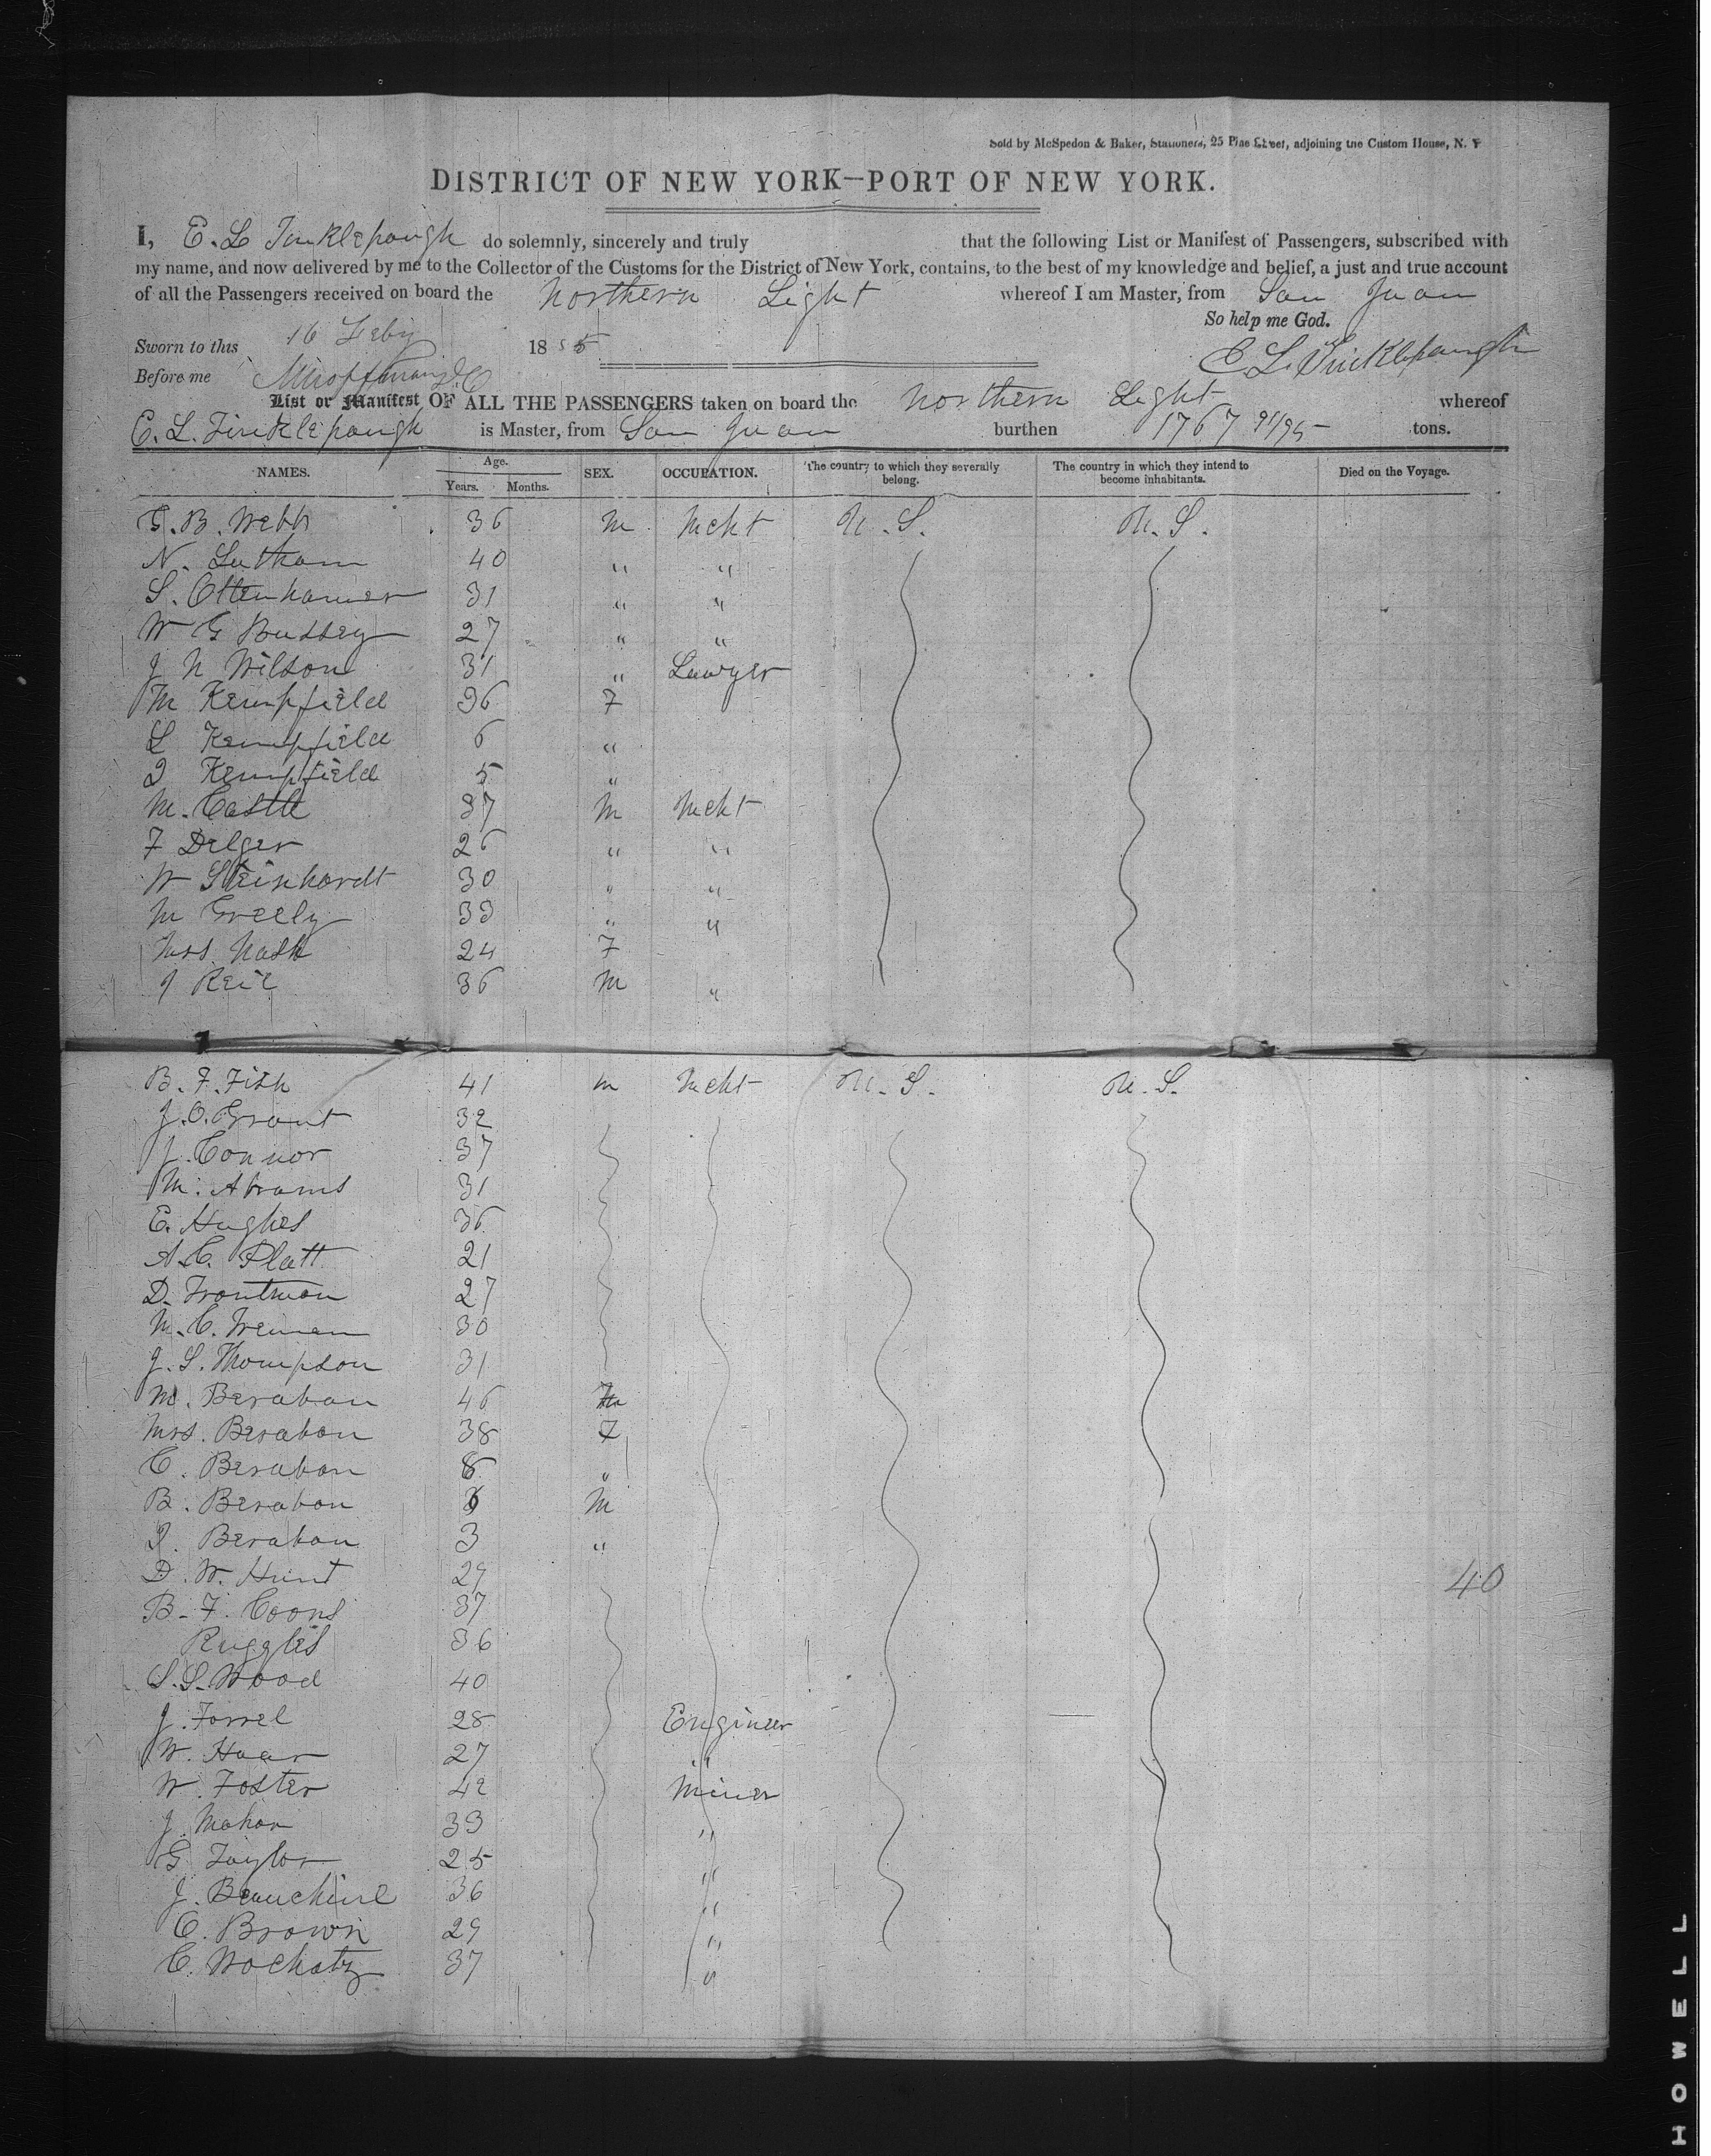 Sold by McSpedon & Baker, Stationers, 25 Pine Street, adjoining the Custom House, N. Y
DISTRICT OF NEW YORK—PORT OF NEW YORK.
I, E. L Tinklepaugh do solemnly, sincerely and truly that the following List or Manifest of Passengers, subscribed with
my name, and now delivered by me to the Collector of the Customs for the District of New York, contains, to the best of my knowledge and belief, a just and true account
of all the Passengers received on board the Northern Light whereof I am Master, from San Juan
So help me God.
Sworn to this 16 Feby 1855
E L. Tinklepaugh
Before me
List or Manifest OF ALL THE PASSENGERS taken on board the Northern Light whereof
E. L. Tinklepaugh is Master, from San Juan burthen 1767 91/95 tons.
NAMES. Age. Years. Months. SEX. OCCUPATION. The country to which they severally belong. The country in which they intend to become inhabitants. Died on the Voyage.
G. B. Webb 36 M Mcht U.S. U.S.
N. Latham 40 " "
S. Ottenhamer 31 " "
W G Bussey 27 " "
J N Wilson 31 " Lawyer
M Kempfield 36 F
L Kempfield 6 "
I Kempfield 5 "
M. Castle 37 M Mcht
F Delger 26 " "
W Steinhardt 30 " "
M Greely 33 " "
Mrs. Nash 24 F
J Reil 36 M "
B. F. Fish 41 M Mcht U.S. U.S.
J. O. Grant 32
J. Connor 37
M. Abrams 31
E. Hughes 36
A. C. Platt 21
D. Troutman 27
M. C. 30
J. S. Thompson 31
M. Beraban 46 M
Mrs. Beraban 38 F
C. Beraban 8 "
B. Beraban 6 M
I. Beraban 3 "
D. W. Hunt 29
B. F. Coons 37
Ruggles 36
S. S. Wood 40
40
J. Forrel 28 Engineer
W. Haar 27 "
W. Foster 42 Miner
J. Mahar 33 "
G Taylor 25 "
J. Beauchine 36 "
C. Brown 29 "
C. Wochatz 37 "
HOWELL